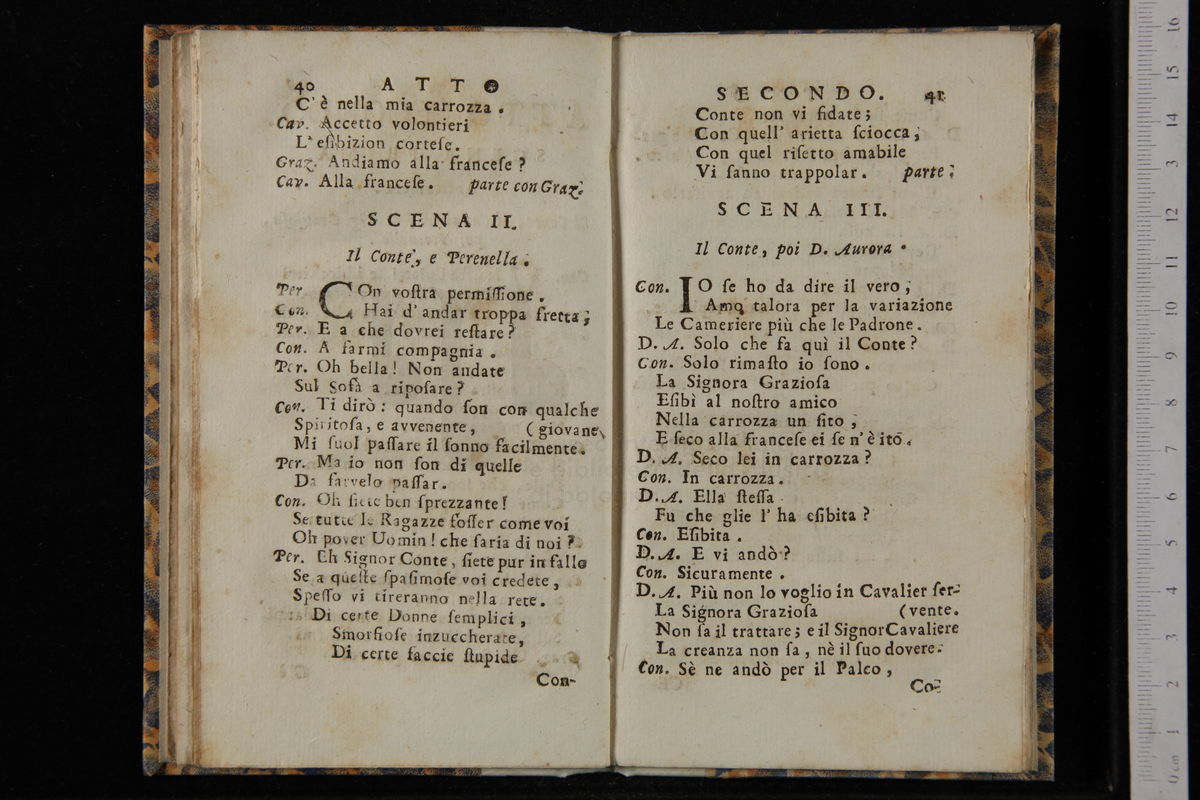 40 ATTO
C'è nella mia carrozza .
Cav. Accetto volontieri
L'esibizion cortese.
Graz. Andiamo alla francese ?
Cav. Alla francese . parte con Graz.
SCENA II.
Il Conte, e Perenella .
Per. COn vostra permissione .
Con. Hai d' andar troppa fretta ;
Per. E a che dovrei restare ?
Con. A farmi compagnia .
Per. Oh bella ! Non andate
Sul Sofà a riposare ?
Con. Ti dirò : quando son con qualche
Spiritosa, e avvenente , ( giovane
Mi suol passare il sonno facilmente.
Per. Ma io non son di quelle
Da farvelo passar.
Con. Oh siete ben sprezzante !
Se tutte le Ragazze fosser come voi
Oh pover Uomin ! che saria di noi ?
Per. Eh Signor Conte , siete pur in fallo
Se a queste spasimose voi credete ,
Spesso vi tireranno nella rete .
Di certe Donne semplici ,
Smorfiose inzuccherate,
Di certe faccie stupide
Con-
SECONDO. 41
Conte non vi fidate ;
Con quell' arietta sciocca ;
Con quel risetto amabile
Vi sanno trappolar . parte ;
SCENA III.
Il Conte, poi D. Aurora .
Con. IO se ho da dire il vero ,
Amo talora per la variazione
Le Cameriere più che le Padrone .
D. A. Solo che fa quì il Conte ?
Con. Solo rimasto io sono .
La Signora Graziosa
Esibì al nostro amico
Nella carrozza un sito ,
E seco alla francese ei se n' è ito .
D. A. Seco lei in carrozza ?
Con. In carrozza .
D. A. Ella stessa
Fu che glie l' ha esibita ?
Con. Esibita .
D. A. E vi andò ?
Con. Sicuramente .
D. A. Più non lo voglio in Cavalier ser-
La Signora Graziosa ( vente.
Non sa il trattare ; e il Signor Cavaliere
La creanza non sa , nè il suo dovere.
Con. Sè ne andò per il Palco ,
Co-
16
15
14
13
12
11
10
9
8
7
6
5
4
3
2
1
0 cm